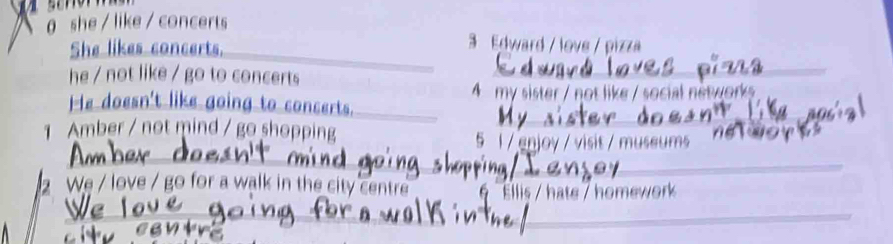 0 she / like / concerts
She likes concerts.
he / not like / go to concerts
He doesn't like going to concerts.
1 Amber / not mind / go shopping
Amber doesn't mind going shopping/
2 We / love / go for a walk in the city centre
We love going for a walk in the/
city centre
3 Edward / love / pizza
Edward loves pizza
4 my sister / not like / social networks
My sister doesn't like social
networks
5 I / enjoy / visit / museums
I enjoy
6 Ellis / hate / homework